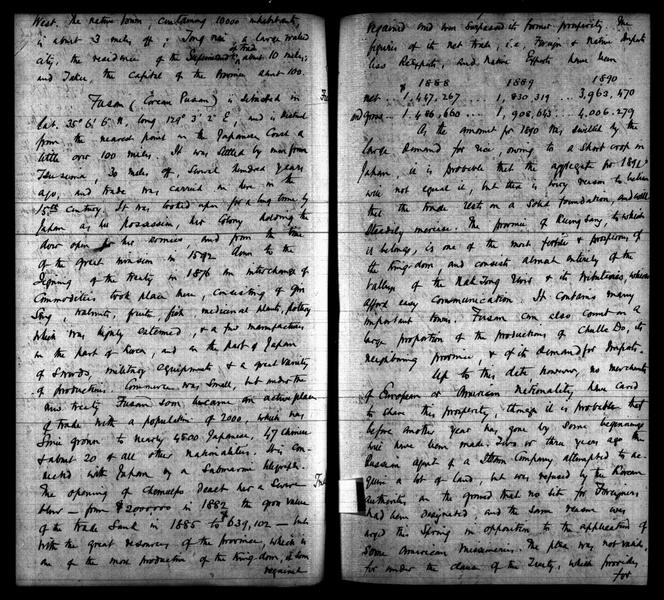 West. The native town, containing 10000 inhabitants,
is about 3 miles off; Tong nai, a large walled
city, the residence of the Superintendent of trade, about 10 miles;
and Taiku, the Capital of the Province about 100.
Fusan (Corean Pusan) is situated in
lat. 35° 6' 6" N, long 129° 3' 2" E, and is distant
from the nearest point on the Japanese Coast a
little over 100 miles. It was settled by men from
Tsusima, 30 miles off, several hundred years
ago, and trade was carried on here in the
15th century. It was looked upon for a long time by
Japan as her possession, her Colony holding the
door open for her armies, and from the time
of the great invasion in 1592 down to the
signing of the treaty in 1876 an interchange of
Commodities took place here, consisting of gin
seng, walnuts, fruits, fish, medicinal plants, pottery
which was highly esteemed, & a few manufactures
on the part of Korea, and on the part of Japan
of swords, military equipments & a great variety
of productions. Commerce was small, but under the
new treaty Fusan soon became an active place
of trade with a population of 2000, which has
since grown to nearly 4500 Japanese, 47 Chinese
& about 20 of all other nationalities. It is con-
nected with Japan by a Submarine telegraph.
The opening of Chemulpo dealt her a severe
blow – from $2000000 in 1882 the gross value
of the trade sank in 1885 to $639,102 – but
with the great resources of the province, which is
one of the most productive of the Kingdom, it soon
regained
regained and has surpassed its former prosperity. The
figures of its net trade, i.e., Foreign & Native Imports
less Reexports, and Native Exports have been
$ 1888 1889 1890
net .. 1,447,267 ... 1,830,319 ... 3,963,470
and gross .. 1,486,660 ... 1,908,643 ... 4,006,279
As the amount for 1890 was swelled by the
large demand for rice, owing to a short crop in
Japan, it is probable that the aggregate for 1891
will not equal it, but there is every reason to believe
that the trade rests on a solid foundation, and will
steadily increase. The province of Kiung Sang, to which
it belongs, is one of the most fertile & prosperous of
the Kingdom, and consists almost entirely of the
valleys of the Nak Tong River & its tributaries, which
afford easy communication. It contains many
important towns. Fusan can also count on a
large proportion of the productions of Chulla Do, its
neighboring province, & of its demand for Imports.
Up to this date, however, no merchants
of European or American nationality have cared
to share this prosperity, though it is probable that
before another year has gone by some beginnings
will have been made. Two or three years ago the
Russian agent of a Steam Company attempted to ac-
quire a lot of land, but was refused by the Korean
authorities on the ground that no site for Foreigners
had been designated, and the same reason was
urged this Spring in opposition to the application of
some American Missionaries. The plea was not valid,
for under the clause of the Treaty, which provides
for